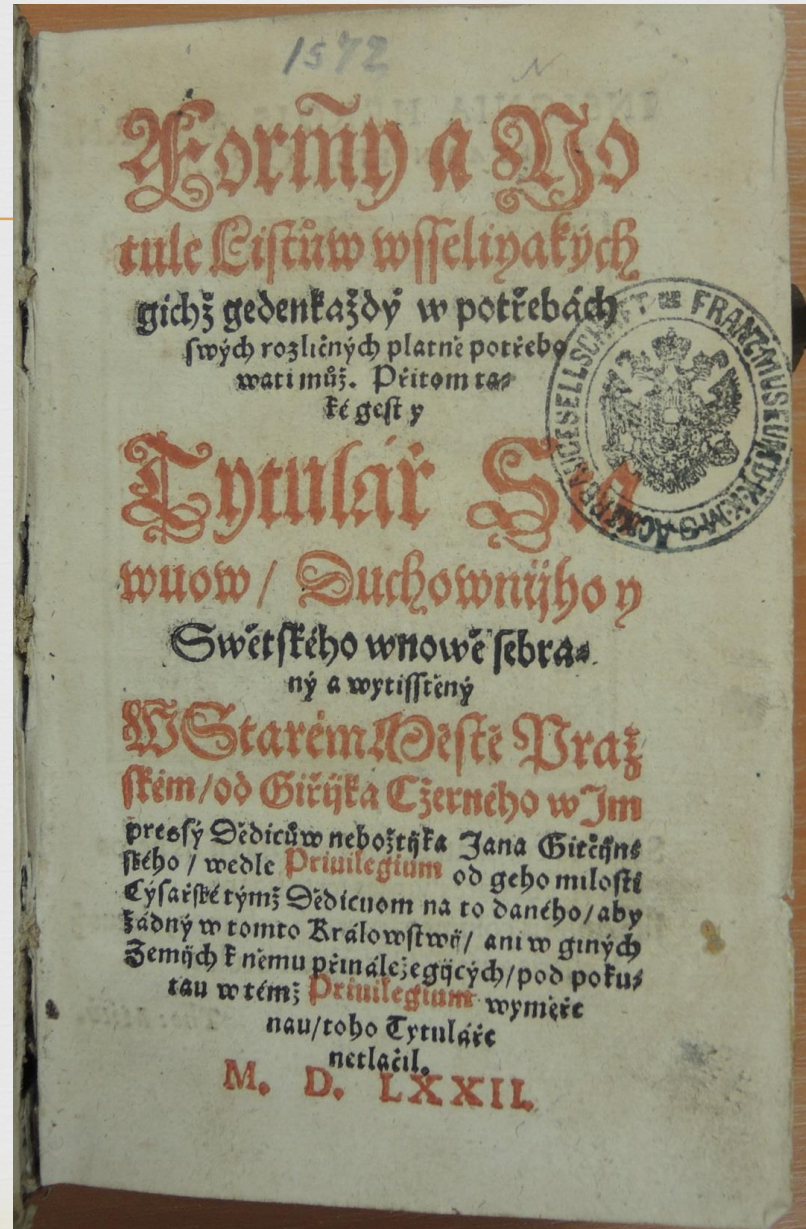 1572
Formy a No
tule Listůw wsseliyakých
gichž gedenkaždý w potřebách
swých rozličných platně potřebo
wati můž. Přitom ta⸗
ké gest y
Tytulář Sta
wuow / Duchownijho y
Swětského wnowě sebra⸗
ný a wytisstěný
W Starém Městě Praž
ském / od Giřijka Cžerného w Jm
pressý Dědicůw nebožtijka Jana Gitčijns
ského / wedle Priuilegium od geho milosti
Cýsařské týmž Dědicuom na to daného / aby
žádný w tomto Králowstwij / ani w giných
Zemijch k němu přináležegijcých / pod poku⸗
tau w témž Priuilegium wyměře
nau / toho Tytuláře
netlačil.
M. D. LXXII.
ACKERBAUGESELLSCHAFT FRANZMUSEUM D. K. K. M. S.